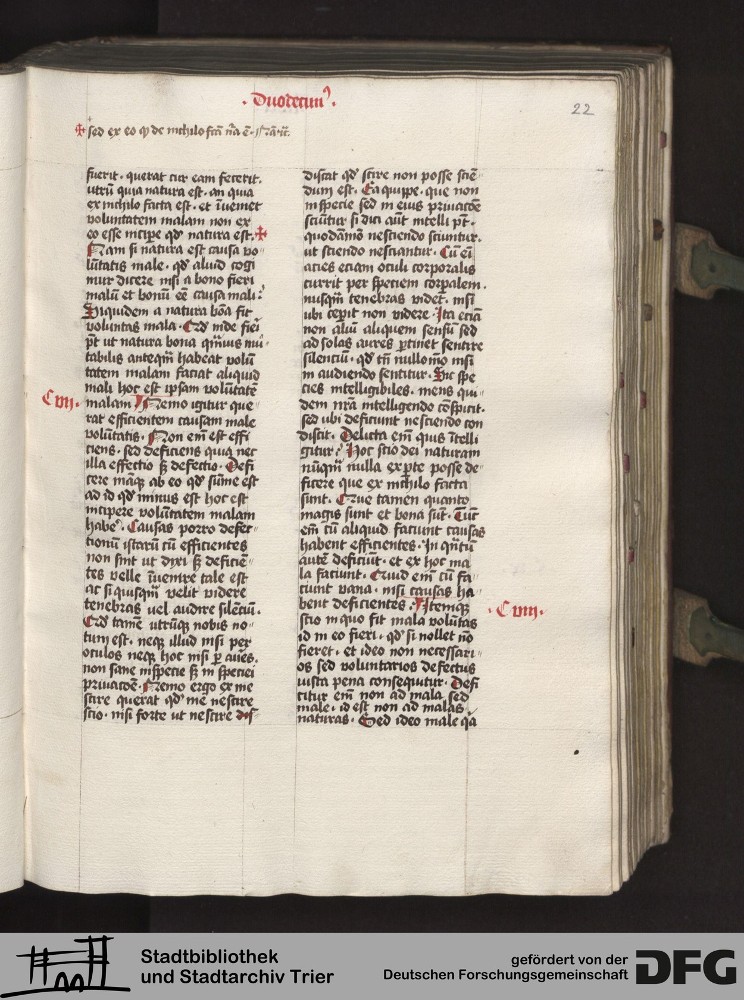 · Duodecim9 ·
22
✠ sed ex eo q̄ de nichilo fc̄a n̄a ē.
fuerit · querat cur eam fecerit ·
utrū quia natura est · an quia
ex nichilo facta est · et īuemet
voluntatem malam non ex
eo esse incipe qd' natura est · ✠
Nam si natura est causa vo
lūtatis male · qd' aliud cogi
mur dicere nisi a bono fieri
malū et bonū eē causa mali ·
Siquidem a natura bōa fit
voluntas mala · Qd' inde fie
p̄t ut natura bona qm̄uis mu
tabilis anteqm̄ habeat volū
tatem malam faciat aliquid
mali hoc est ipsam volūtatē
C vij ·
malam Nemo igitur que
rat efficientem causam male
voluntatis · Non em̄ est effi
ciens · sed deficiens quia nec
illa effectio s; defectio · Defi
cere nāq; ab eo qd' sūme est
ad id qd' minus est hoc est
incipere voluntatem malam
habe · Causas porro defec
tionū istarū cū efficientes
non sint ut dixi s; deficiē
tes velle īuenire tale est
ac si quisqm̄ velit videre
tenebras vel audire silēciū ·
Qd' tamē utrūq; nobis no
tum est · neq; illud nisi per
oculos neq; hoc nisi p aures ·
non sane in specie s; in speciei
privacōe · Nemo ergo ex me
scire querat qd' me nescire
scio · nisi forte ut nescire dis
discat qd' scire non posse sciē
dum est · Ea quippe · que non
in specie sed in eius privacōe
sciūtur si dici aūt intelli p̄t ·
quodāmō nesciendo sciuntur ·
ut sciendo nesciantur · Cū eī
acies eciam oculi corporalis
currit per speciem corpalem ·
nusqm̄ tenebras videt · nisi
ubi cepit non videre · Ita eciā
non aliū aliquem sensū sed
ad solas aures p̄tinet sentire
silenciū · qd' tn̄ nullomō nisi
in audiendo sentitur · Sic spe
cies intelligibiles · mens qui
dem nr̄a intelligendo cōspicit ·
sed ubi deficiunt nesciendo con
discit · Delicta em̄ quis ītelli
gitur · Hoc scio dei naturam
nūqm̄ nulla ex pte posse de
ficere que ex nichilo facta
sunt · Que tamen quanto
magis sunt et bona sūt · Tūc
em̄ cū aliquid faciunt causas
habent efficientes · In qn̄tū
autē deficiūt · et ex hoc ma
la faciunt · Quid em̄ cū fa
ciunt vana · nisi causas ha
bent deficientes · Itemq;
· C viij ·
scio in quo fit mala volūtas
id in eo fieri · qd' si nollet nō
fieret · et ideo non necessari
os sed voluntarios defectus
iusta pena consequitur · Defi
citur em̄ non ad mala sed
male · id est non ad malas
naturas · Sed ideo male q̄a
Stadtbibliothek
und Stadtarchiv Trier
gefördert von der
Deutschen Forschungsgemeinschaft
DFG